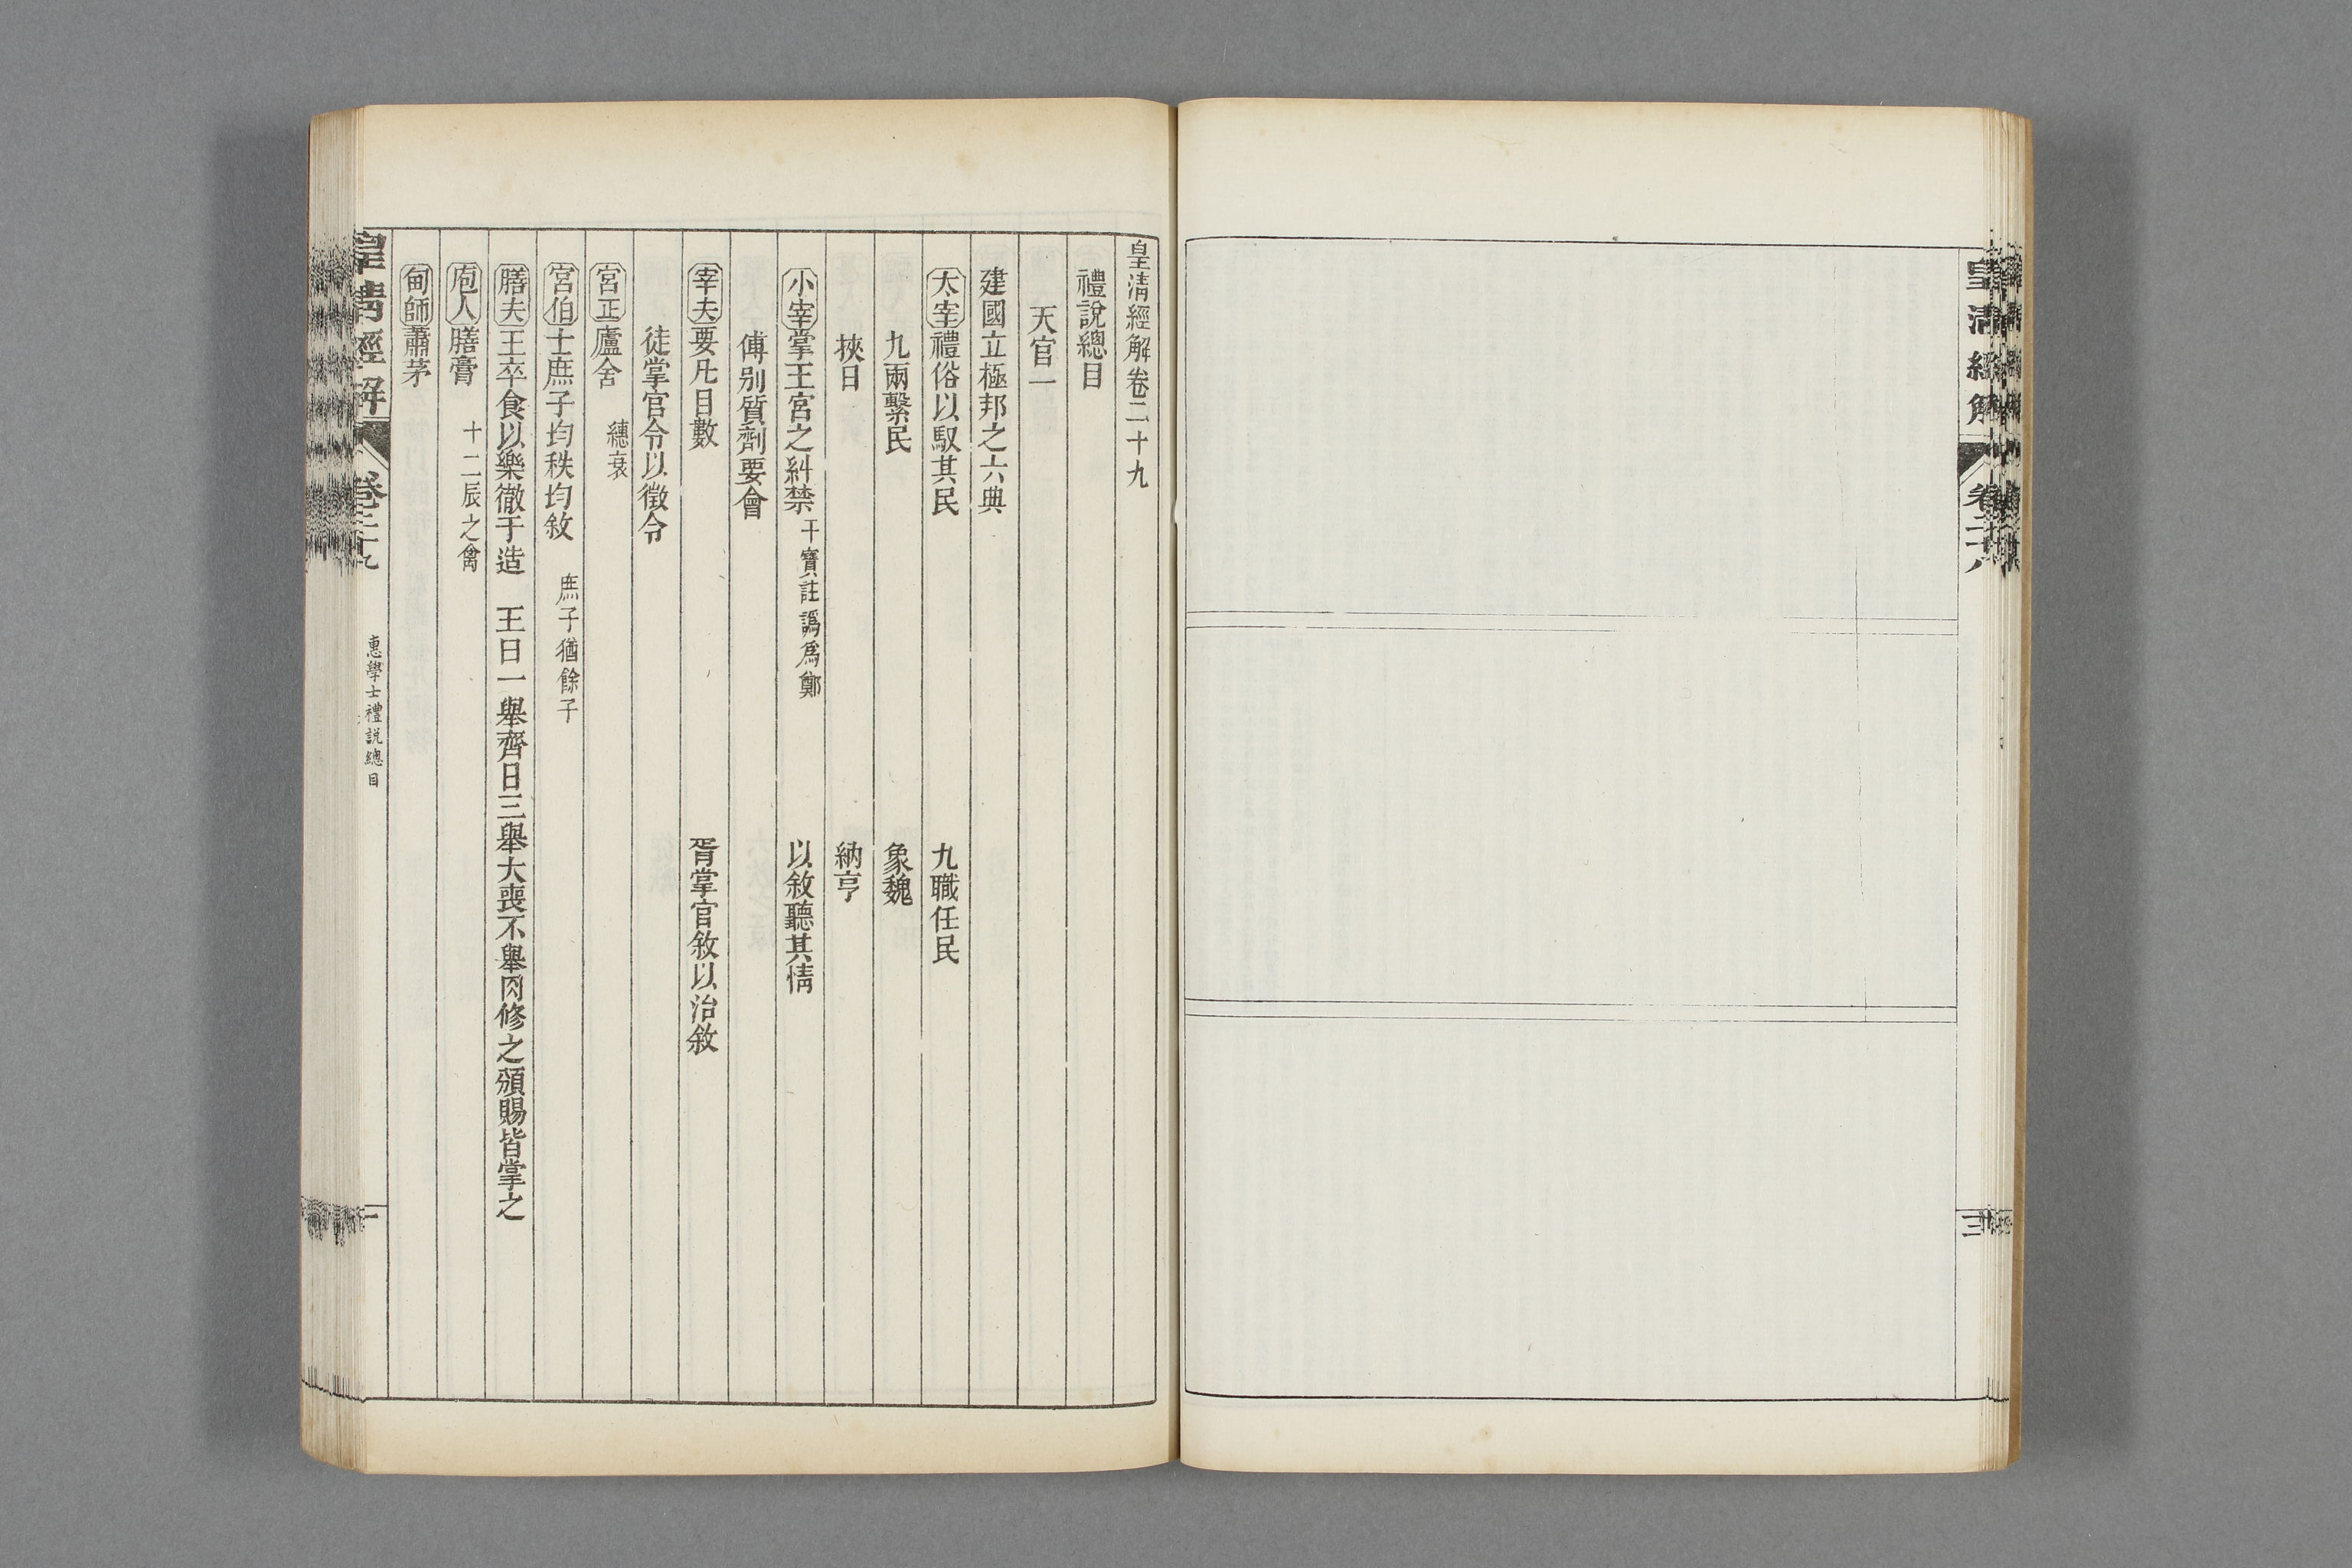 皇清經解
卷二十八
三
皇清經解卷二十九
禮說總目
天官一
建國立極邦之六典
太宰禮俗以馭其民　九職任民
九兩繫民　象魏
挾日　納亨
小宰掌王宮之糾禁干寶註譌爲鄭　以敘聽其情
傅别質劑要會
宰夫要凡目數　胥掌官敘以治敘
徒掌官令以徵令
宮正廬舍　繐衰
宮伯士庶子均秩均敘　庶子猶餘子
膳夫王卒食以樂徹于造　王日一舉齊日三舉大喪不舉肉修之頒賜皆掌之
庖人膳膏　十二辰之禽
甸師蕭茅
皇清經解
卷二十九
惠學士禮說總目
一